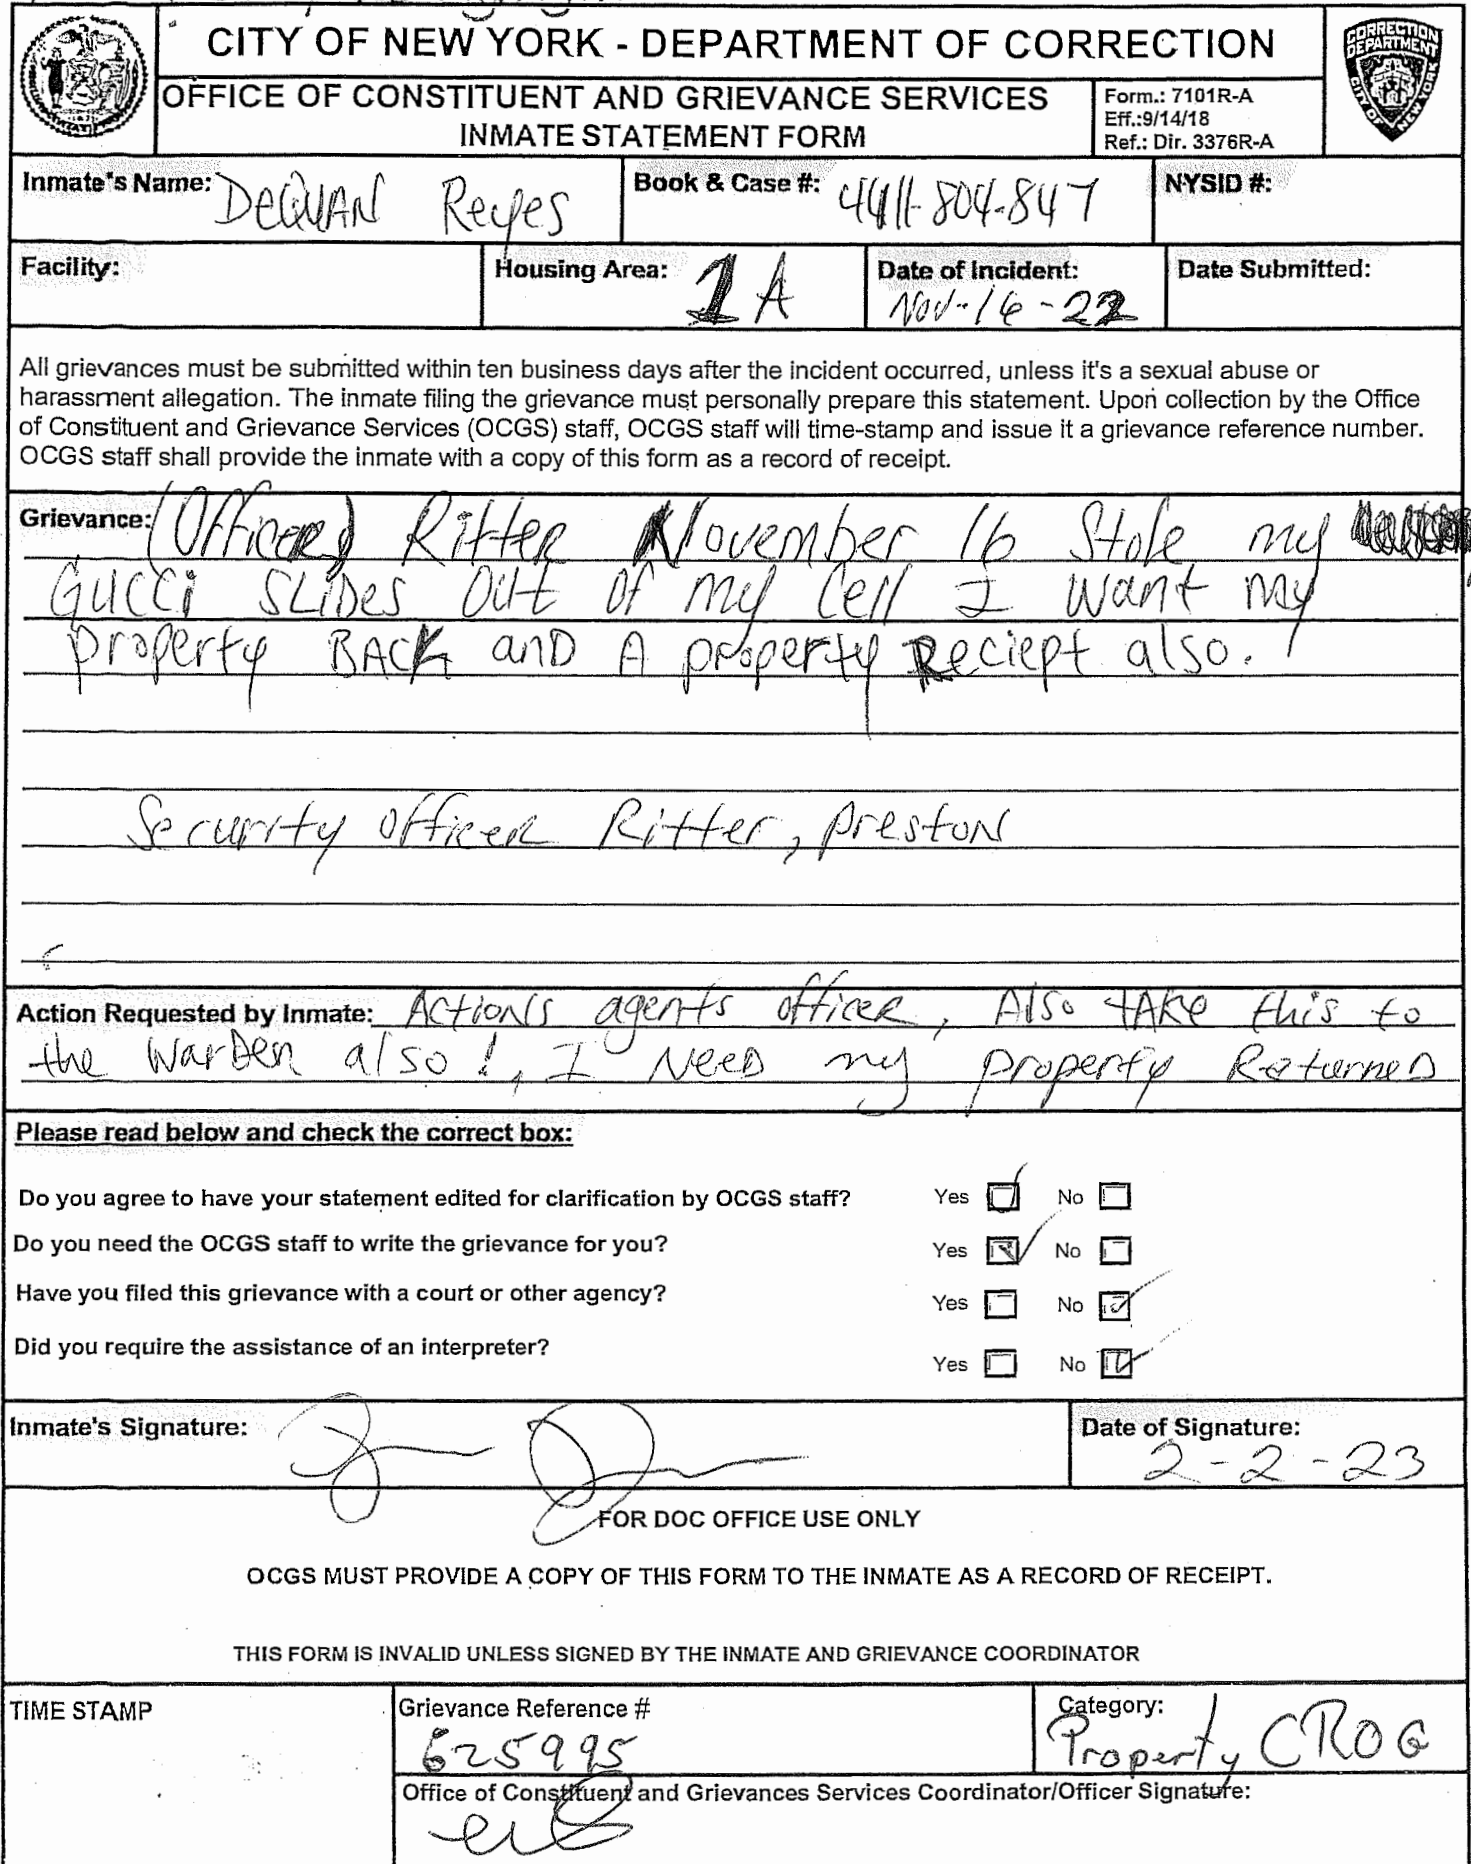 CITY OF NEW YORK - DEPARTMENT OF CORRECTION
CORRECTION DEPARTMENT CITY OF NEW YORK
OFFICE OF CONSTITUENT AND GRIEVANCE SERVICES
INMATE STATEMENT FORM
Form.: 7101R-A
Eff.:9/14/18
Ref.: Dir. 3376R-A
Inmate's Name: DeQUAN Reyes
Book & Case #: 441-804-847
NYSID #:
Facility:
Housing Area: 1A
Date of Incident: Nov-16-22
Date Submitted:
All grievances must be submitted within ten business days after the incident occurred, unless it's a sexual abuse or
harassment allegation. The inmate filing the grievance must personally prepare this statement. Upon collection by the Office
of Constituent and Grievance Services (OCGS) staff, OCGS staff will time-stamp and issue it a grievance reference number.
OCGS staff shall provide the inmate with a copy of this form as a record of receipt.
Grievance: (Officer) Ritter November 16 Stole my
Gucci SLiDes Out of my Cell I want my
property BACK anD A property Reciept also.
Security officer Ritter, preston
Action Requested by Inmate: Action's agents officer, Also tAKe this to
the WarDen also!, I NeeD my property ReturneD
Please read below and check the correct box:
Do you agree to have your statement edited for clarification by OCGS staff? Yes No
Do you need the OCGS staff to write the grievance for you? Yes No
Have you filed this grievance with a court or other agency? Yes No
Did you require the assistance of an interpreter? Yes No
Inmate's Signature:
Date of Signature: 2-2-23
FOR DOC OFFICE USE ONLY
OCGS MUST PROVIDE A COPY OF THIS FORM TO THE INMATE AS A RECORD OF RECEIPT.
THIS FORM IS INVALID UNLESS SIGNED BY THE INMATE AND GRIEVANCE COORDINATOR
TIME STAMP
Grievance Reference #
625995
Category:
Property CROG
Office of Constituent and Grievances Services Coordinator/Officer Signature: